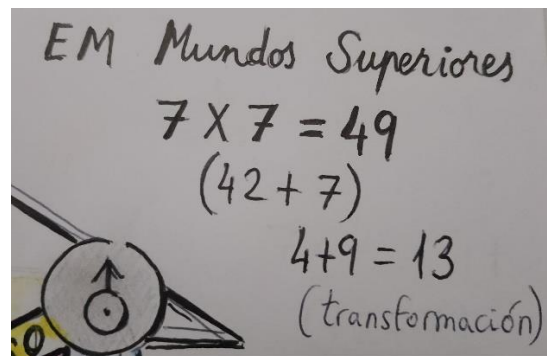 EM Mundos Superiores
7 X 7 = 49
(42 + 7)
4+9 = 13
(transformación)